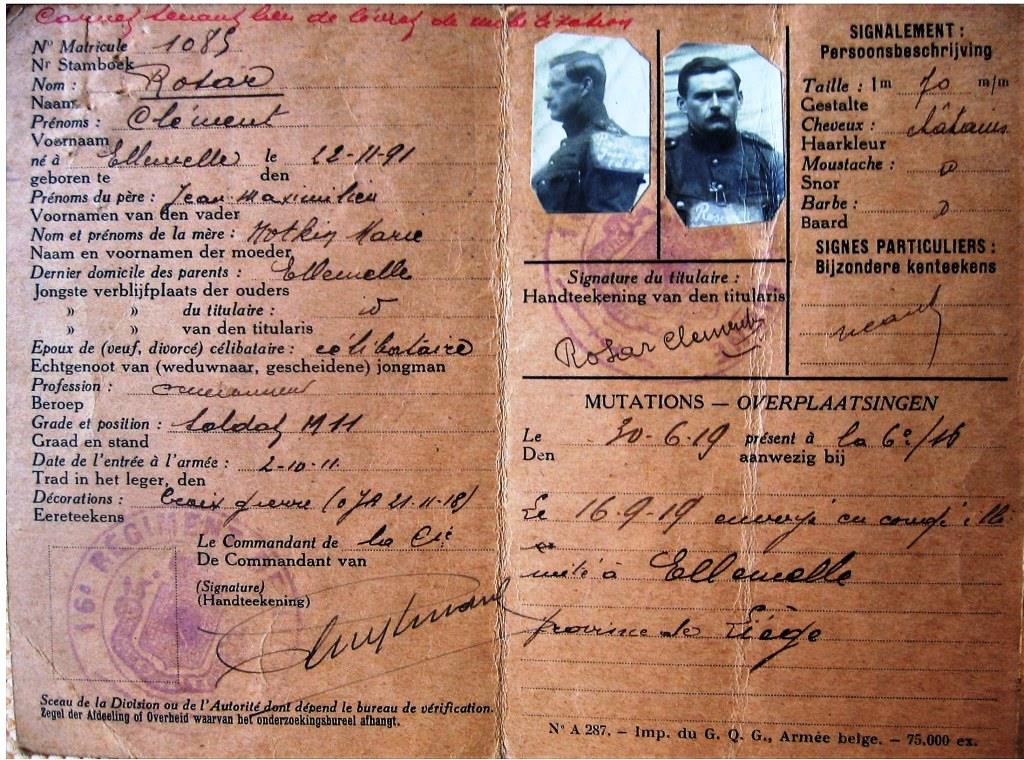 Carnet tenant lieu de livret de mobilisation
N° Matricule 1085
Nr Stamboek
Nom : Rosar
Naam
Prénoms : Clément
Voornaam
né à Ellemelle le 22-11-91
geboren te den
Prénoms du père : Jean Maximilien
Voornamen van den vader
Nom et prénoms de la mère : Hotkin Marie
Naam en voornamen der moeder
Dernier domicile des parents : Ellemelle
Jongste verblijfplaats der ouders
» » du titulaire :
» » van den titularis
Epoux de (veuf, divorcé) célibataire : célibataire
Echtgenoot van (weduwnaar, gescheidene) jongman
Profession :
Beroep
Grade et position : Soldat 1911
Graad en stand
Date de l'entrée à l'armée : 2-10-11
Trad in het leger, den
Décorations : Croix guerre (OJA 21-11-18)
Eereteekens
Le Commandant de la Cie
De Commandant van
(Signature)
(Handteekening)
16e REGIMENT
Sceau de la Division ou de l'Autorité dont dépend le bureau de vérification.
Zegel der Afdeeling of Overheid waarvan het onderzoekingsbureel afhangt.
Signature du titulaire :
Handteekening van den titularis
Rosar Clement
SIGNALEMENT :
Persoonsbeschrijving
Taille : 1m 70 m/m
Gestalte
Cheveux : châtains
Haarkleur
Moustache :
Snor
Barbe :
Baard
SIGNES PARTICULIERS :
Bijzondere kenteekens
néant
MUTATIONS — OVERPLAATSINGEN
Le 30-6-19 présent à la 6e/16
Den aanwezig bij
Le 16-9-19 envoyé en congé illi
mité à Ellemelle
province de Liège
N° A 287. — Imp. du G. Q. G., Armée belge. — 75.000 ex.